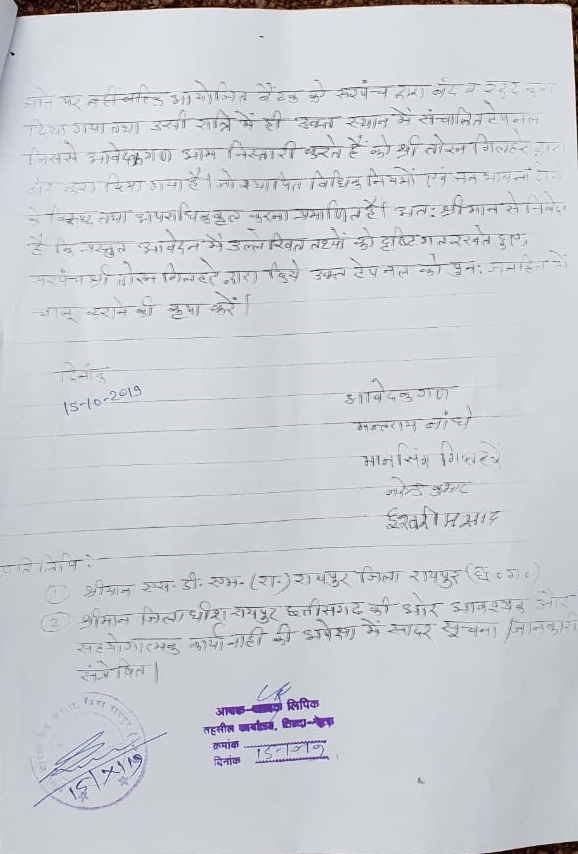 जाने पर नहीं बल्कि आयोजित बैठक को सरपंच द्वारा बंद व रद्द करा
दिया गया तथा उसी रात्रि में ही उक्त स्थान में संचालित टेप नल
जिसमें आवेदकगण आम निस्तारी करते हैं को श्री तोरन गिलहरे द्वारा
बंद करा दिया गया है। जो स्थापित विधिक नियमों एवं
के विरुद्ध तथा अपराधिक कृत्य करना प्रमाणित है। अतः श्रीमान से निवेदन
है कि प्रस्तुत आवेदन में उल्लेखित तथ्यों को दृष्टिगत रखते हुए
सरपंच श्री तोरन गिलहरे द्वारा किये उक्त टेप नल को पुनः जनहित में
चालू कराने की कृपा करें।
दिनांक
15-10-2019
आवेदकगण
मनतराम बांधे
मानसिंग गिलहरे
नरेन्द्र कुमार
ईश्वरी प्रसाद
प्रतिलिपि:
① श्रीमान एस. डी. एम. (रा.) रायपुर जिला रायपुर (छ.ग.)
② श्रीमान जिलाधीश रायपुर छत्तीसगढ़ की ओर आवश्यक और
सहयोगात्मक कार्यवाही की अपेक्षा में सादर सूचना / जानकारी
संप्रेषित।
आवक- लिपिक
तहसील कार्यालय,
क्रमांक
दिनांक
15/X/19